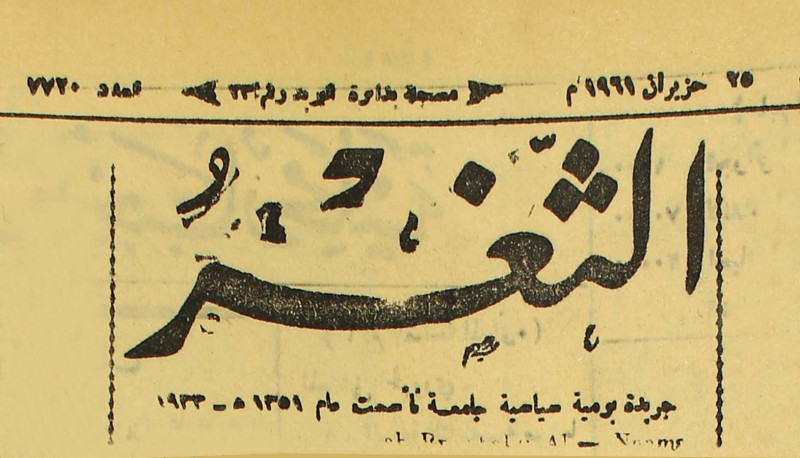 ٢٥ حزيران ١٩٦١ م مسجلة بدائرة البريد رقم ٢٣ العدد ٧٧٢٠
الثَّغْرُ
جريدة يومية سياسية جامعة تأسست عام ١٣٥١ ه ـ ١٩٣٣